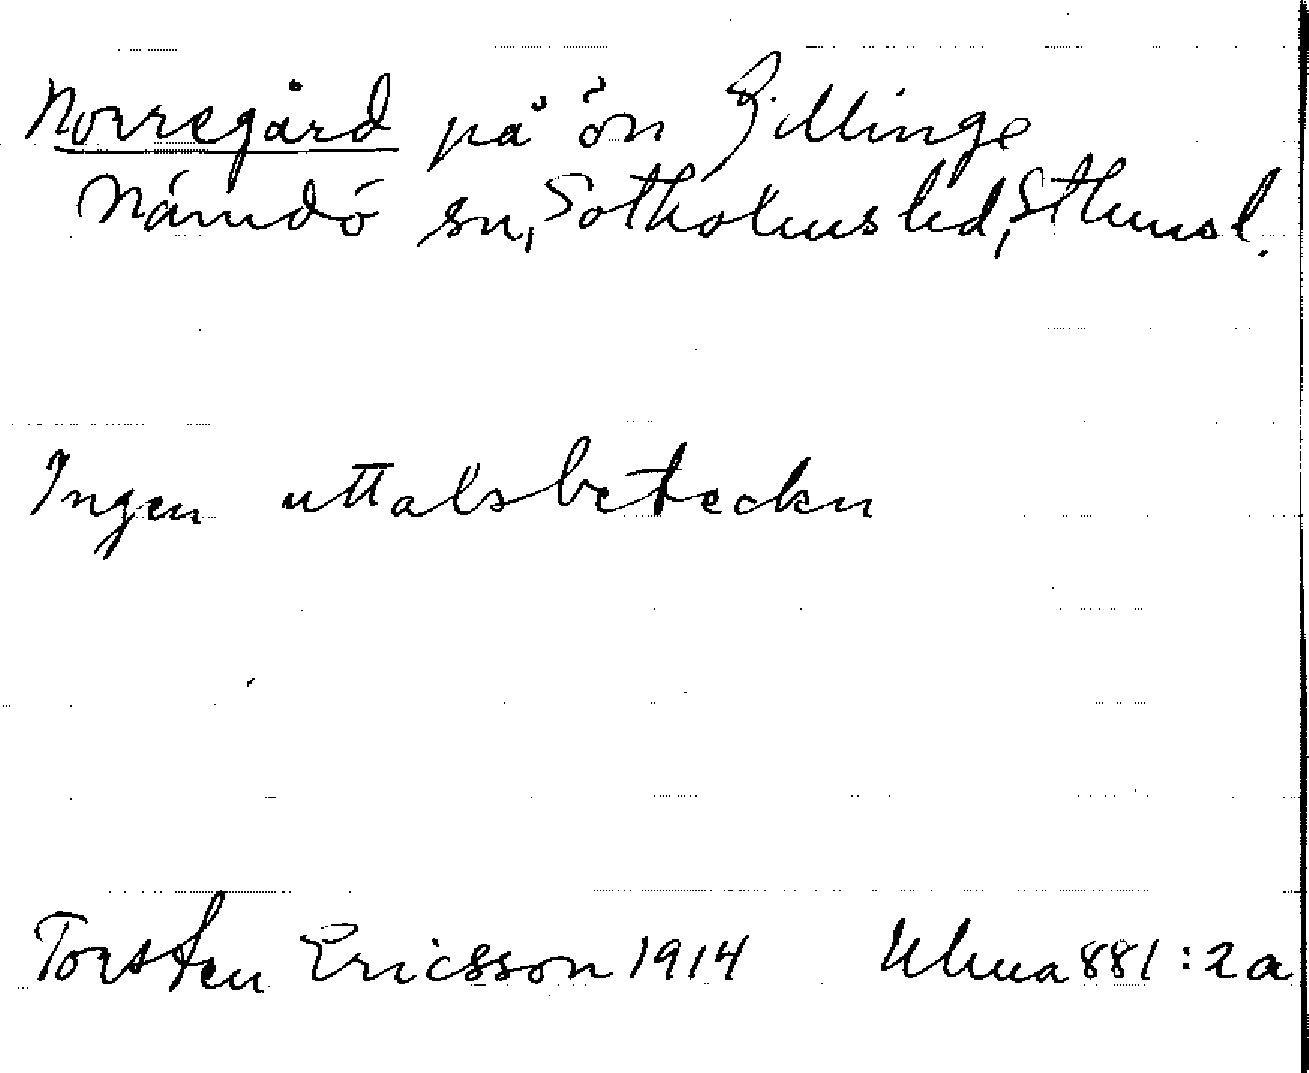 Norregård på ön Gillinge
Nämdö sn, Sotholms hd, Sthms l.
Ingen uttalsbeteckn
Torsten Ericsson 1914 Uluma 881:2a